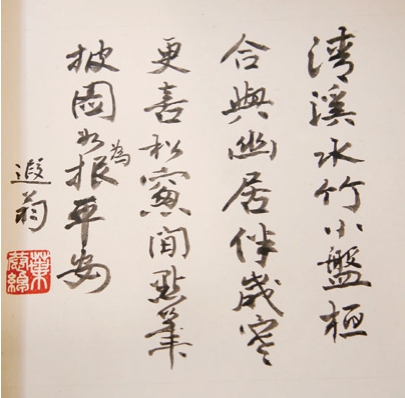 清溪水竹小盤桓
合與幽居伴歲寒
更喜松窗閒點筆
披圖如為報平安
遐翁
葉恭綽